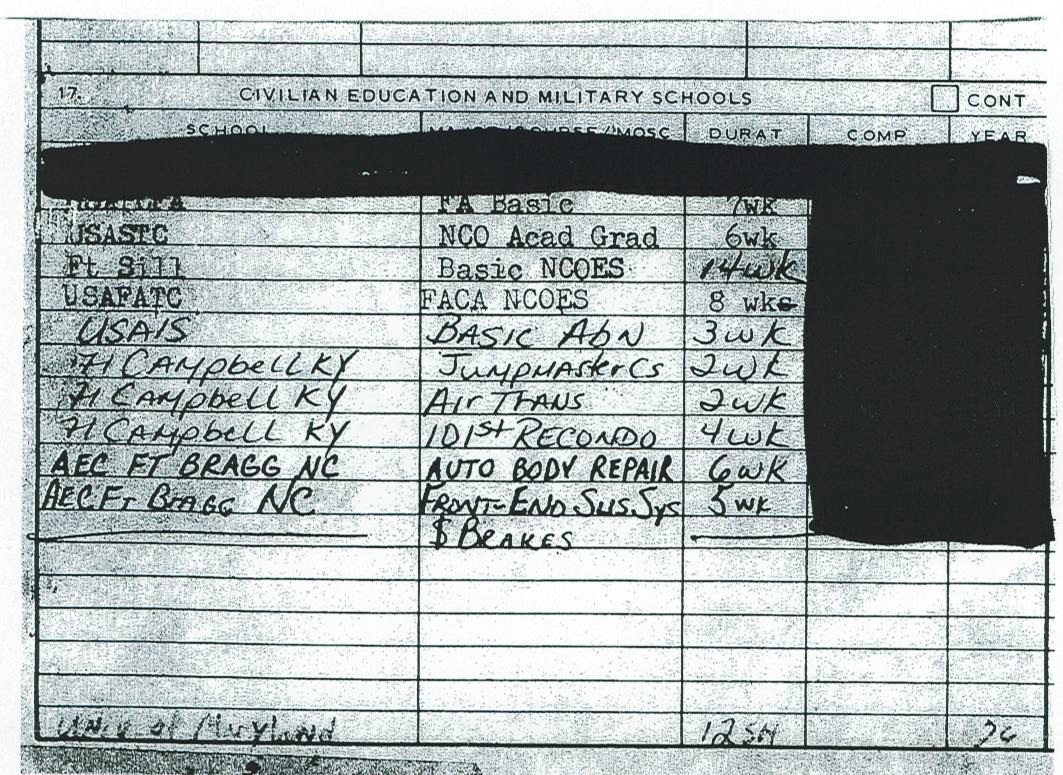 17. CIVILIAN EDUCATION AND MILITARY SCHOOLS CONT
SCHOOL DURAT COMP YEAR
FA Basic 7wk
USASTC NCO Acad Grad 6wk
Ft Sill Basic NCOES 14wk
USAFATC FACA NCOES 8 wks
USAIS BASIC AbN 3wK
Ft CAMpbell KY JUMpMASterCs 2wK
Ft CAMpbell KY Air TRANS 2wK
Ft CAMpbell KY 101st RECONDO 4wK
AEC FT BRAGG NC AUTO BODY REPAIR 6wK
AEC FT BRAGG NC FRONT-END SUS.SYS 5wK
$ BRAKES
Univ of Maryland 12 SH